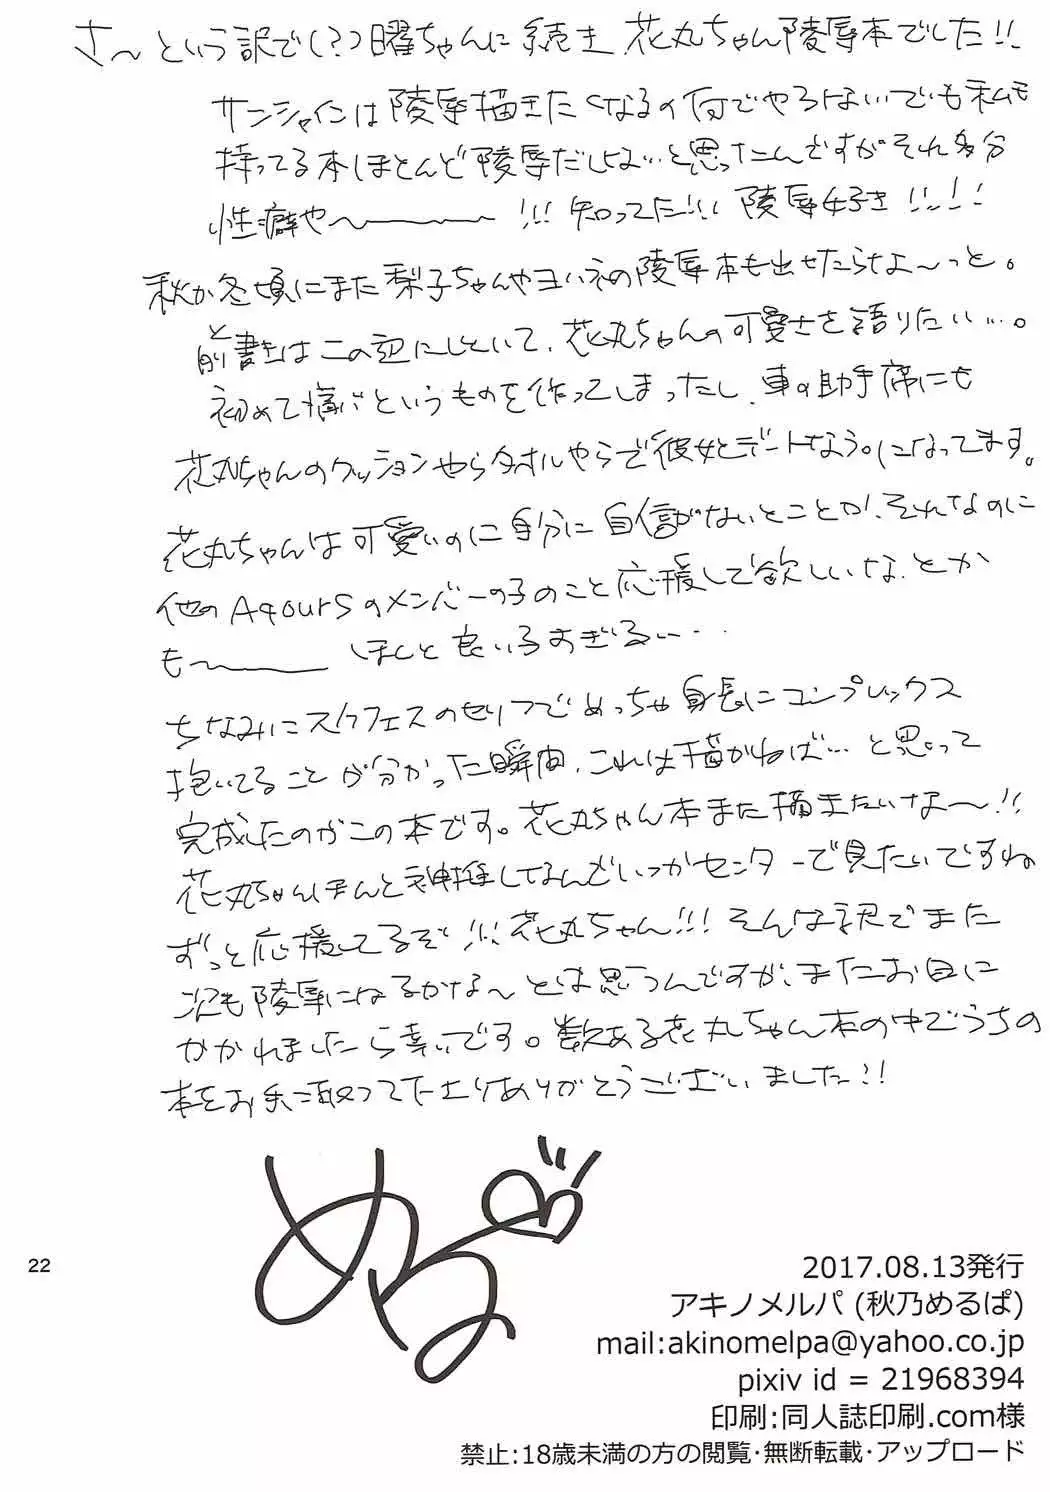 さ〜という訳で(?)曜ちゃんに続き花丸ちゃん陵辱本でした!!
サンシャインは陵辱描きたくなるの何でやろ ないでも私も
持ってる本ほとんど陵辱だしな…と思ったんですがそれ多分
性癖や〜!!! 知ってた!!! 陵辱好き!!!!
秋か冬頃にまた梨子ちゃんやヨハネの陵辱本も出せたらな〜っと。
と前書きはこの辺にしといて、花丸ちゃんの可愛さを語りたい…。
初めて痛バというものを作ってしまったし、車の助手席にも
花丸ちゃんのクッションやらタオルやらで彼女とデートなう。になってます。
花丸ちゃんは可愛いのに自分に自信がないとことか、それなのに
他のAqoursのメンバーの子のこと応援して欲しいな、とか
も〜 ほんと良い子すぎる…
ちなみにスクフェスのセリフでめっちゃ身長にコンプレックス
抱いてることが分かった瞬間、これは描かねば…と思って
完成したのがこの本です。花丸ちゃん本また描きたいな〜!!
花丸ちゃんほんと神推しなんでいつかセンターで見たいですね
ずっと応援してるぞ!!! 花丸ちゃん!!! そんな訳でまた
次も陵辱になるかな〜とは思うんですが、またお目に
かかれましたら幸いです。数ある花丸ちゃん本の中でうちの
本をお手に取って下さりありがとうございました!!
める
22
2017.08.13発行
アキノメルパ (秋乃めるぱ)
mail:akinomelpa@yahoo.co.jp
pixiv id = 21968394
印刷:同人誌印刷.com様
禁止:18歳未満の方の閲覧・無断転載・アップロード